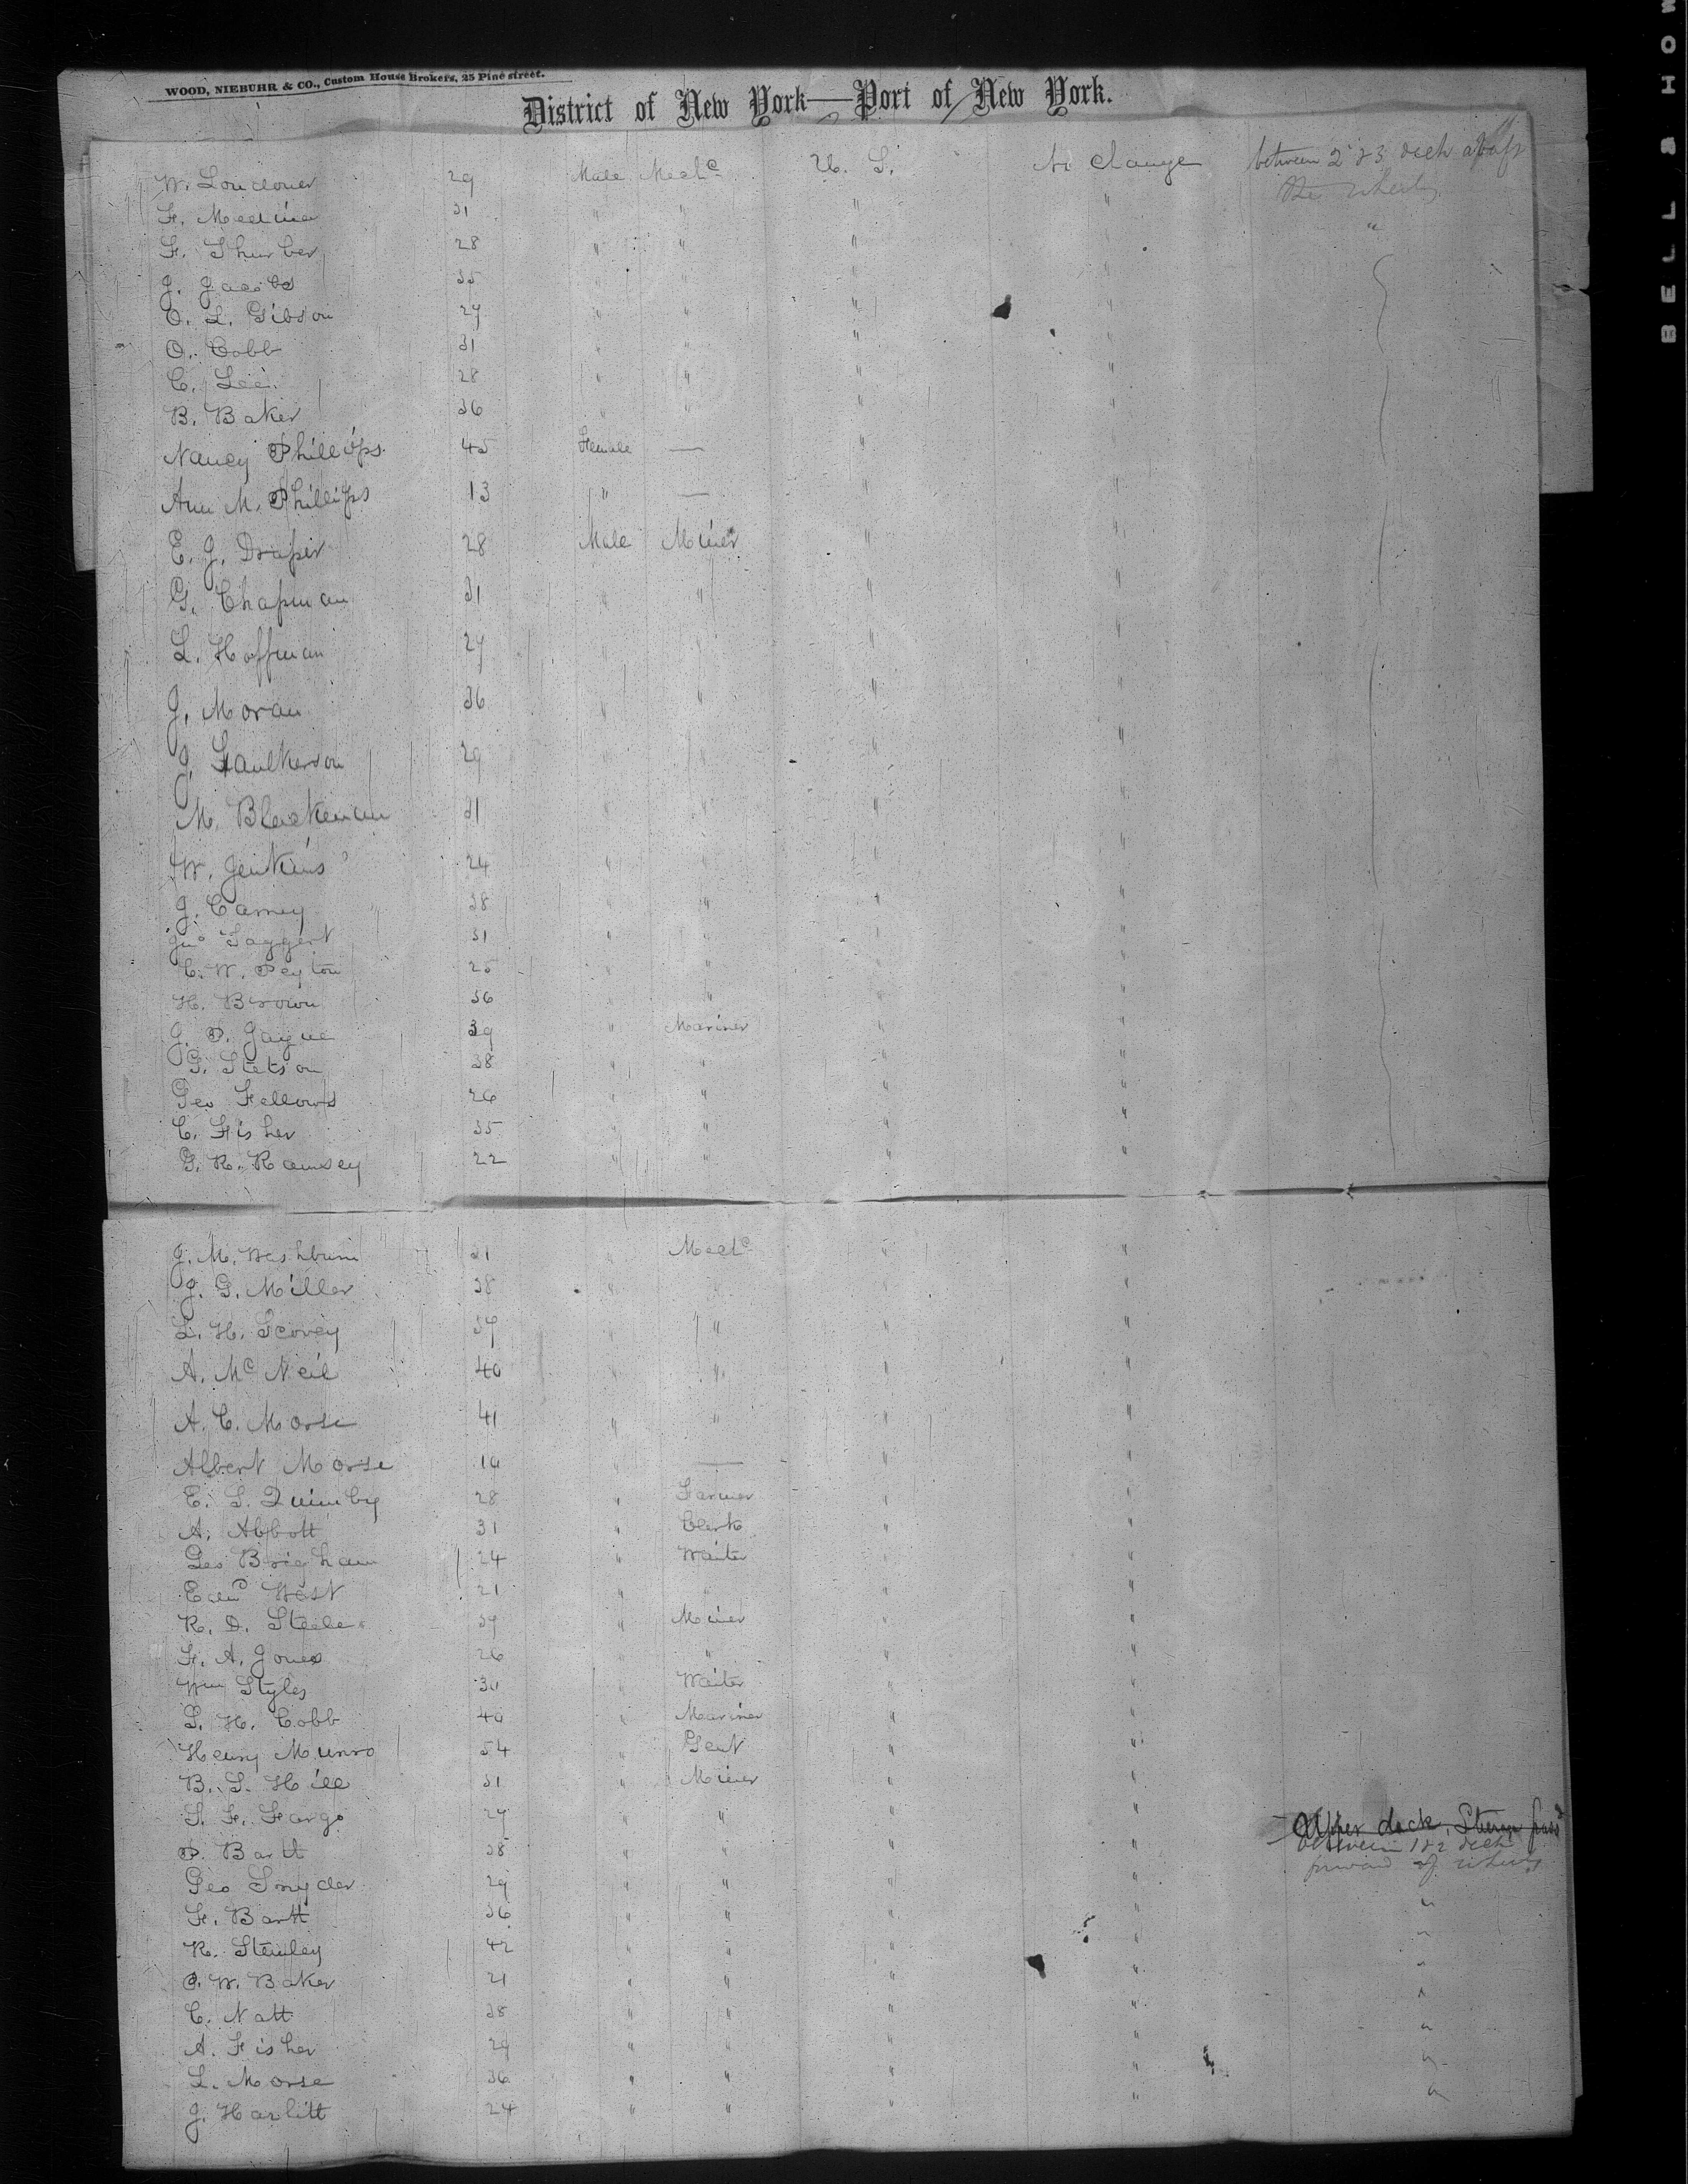 WOOD, NIEBUHR & CO., Custom House Brokers, 25 Pine street.
District of New York—Port of New York.
W. Loudoner 29 Male Mechc U. S. No Change between 2 & 3 deck abaft
F. Medina 31 " " " " the wheels
F. Thurber 28 " " " " "
J. Jacobs 35 " " " "
O. L. Gibson 27 " " " "
O. Cobb 31 " " " "
C. Lee 28 " " " "
B. Baker 36 " " " "
Nancy Phillips 45 Female — " "
Ann M. Phillips 13 " — " "
E. J. Draper 28 Male Miner " "
G. Chapman 31 " " " "
L. Hoffman 27 " " " "
J. Moran 36 " " " "
J. Faulkerson 29 " " " "
M. Blackman 31 " " " "
W. Jenkins 24 " " " "
J. Carney 38 " " " "
Jno Taggert 31 " " " "
C. W. Peyton 25 " " " "
H. Brown 36 " " " "
J. P. Gayne 39 " Mariner " "
G. Stetson 38 " " " "
Geo Fellows 26 " " " "
C. Fisher 35 " " " "
G. R. Ramsey 22 " " " "
J. M. Washburn 31 " Mechc " "
J. G. Miller 38 " " " "
L. H. Scovey 37 " " " "
A. McNeil 40 " " " "
A. C. Morse 41 " " " "
Albert Morse 14 " — " "
E. S. Quimby 28 " Farmer " "
A. Abbott 31 " Clerk " "
Geo Brigham 24 " Waiter " "
Edwd West 21 " " " "
R. D. Steele 37 " Miner " "
F. A. Jones 26 " " " "
Wm Styles 30 " Waiter " "
S. H. Cobb 40 " Mariner " "
Henry Munro 54 " Gent " "
B. S. Hill 31 " Miner " "
S. F. Fargo 27 " " " " Upper deck, Steerage
P. Bartt 38 " " " " between 1 & 2 deck
forward of wheels
Geo Snyder 29 " " " " "
F. Bartt 36 " " " " "
R. Stanley 42 " " " " "
O. W. Baker 21 " " " " "
C. Natt 38 " " " " "
A. Fisher 29 " " " " "
L. Morse 36 " " " " "
J. Hazlitt 24 " " " "
BELL & HOW